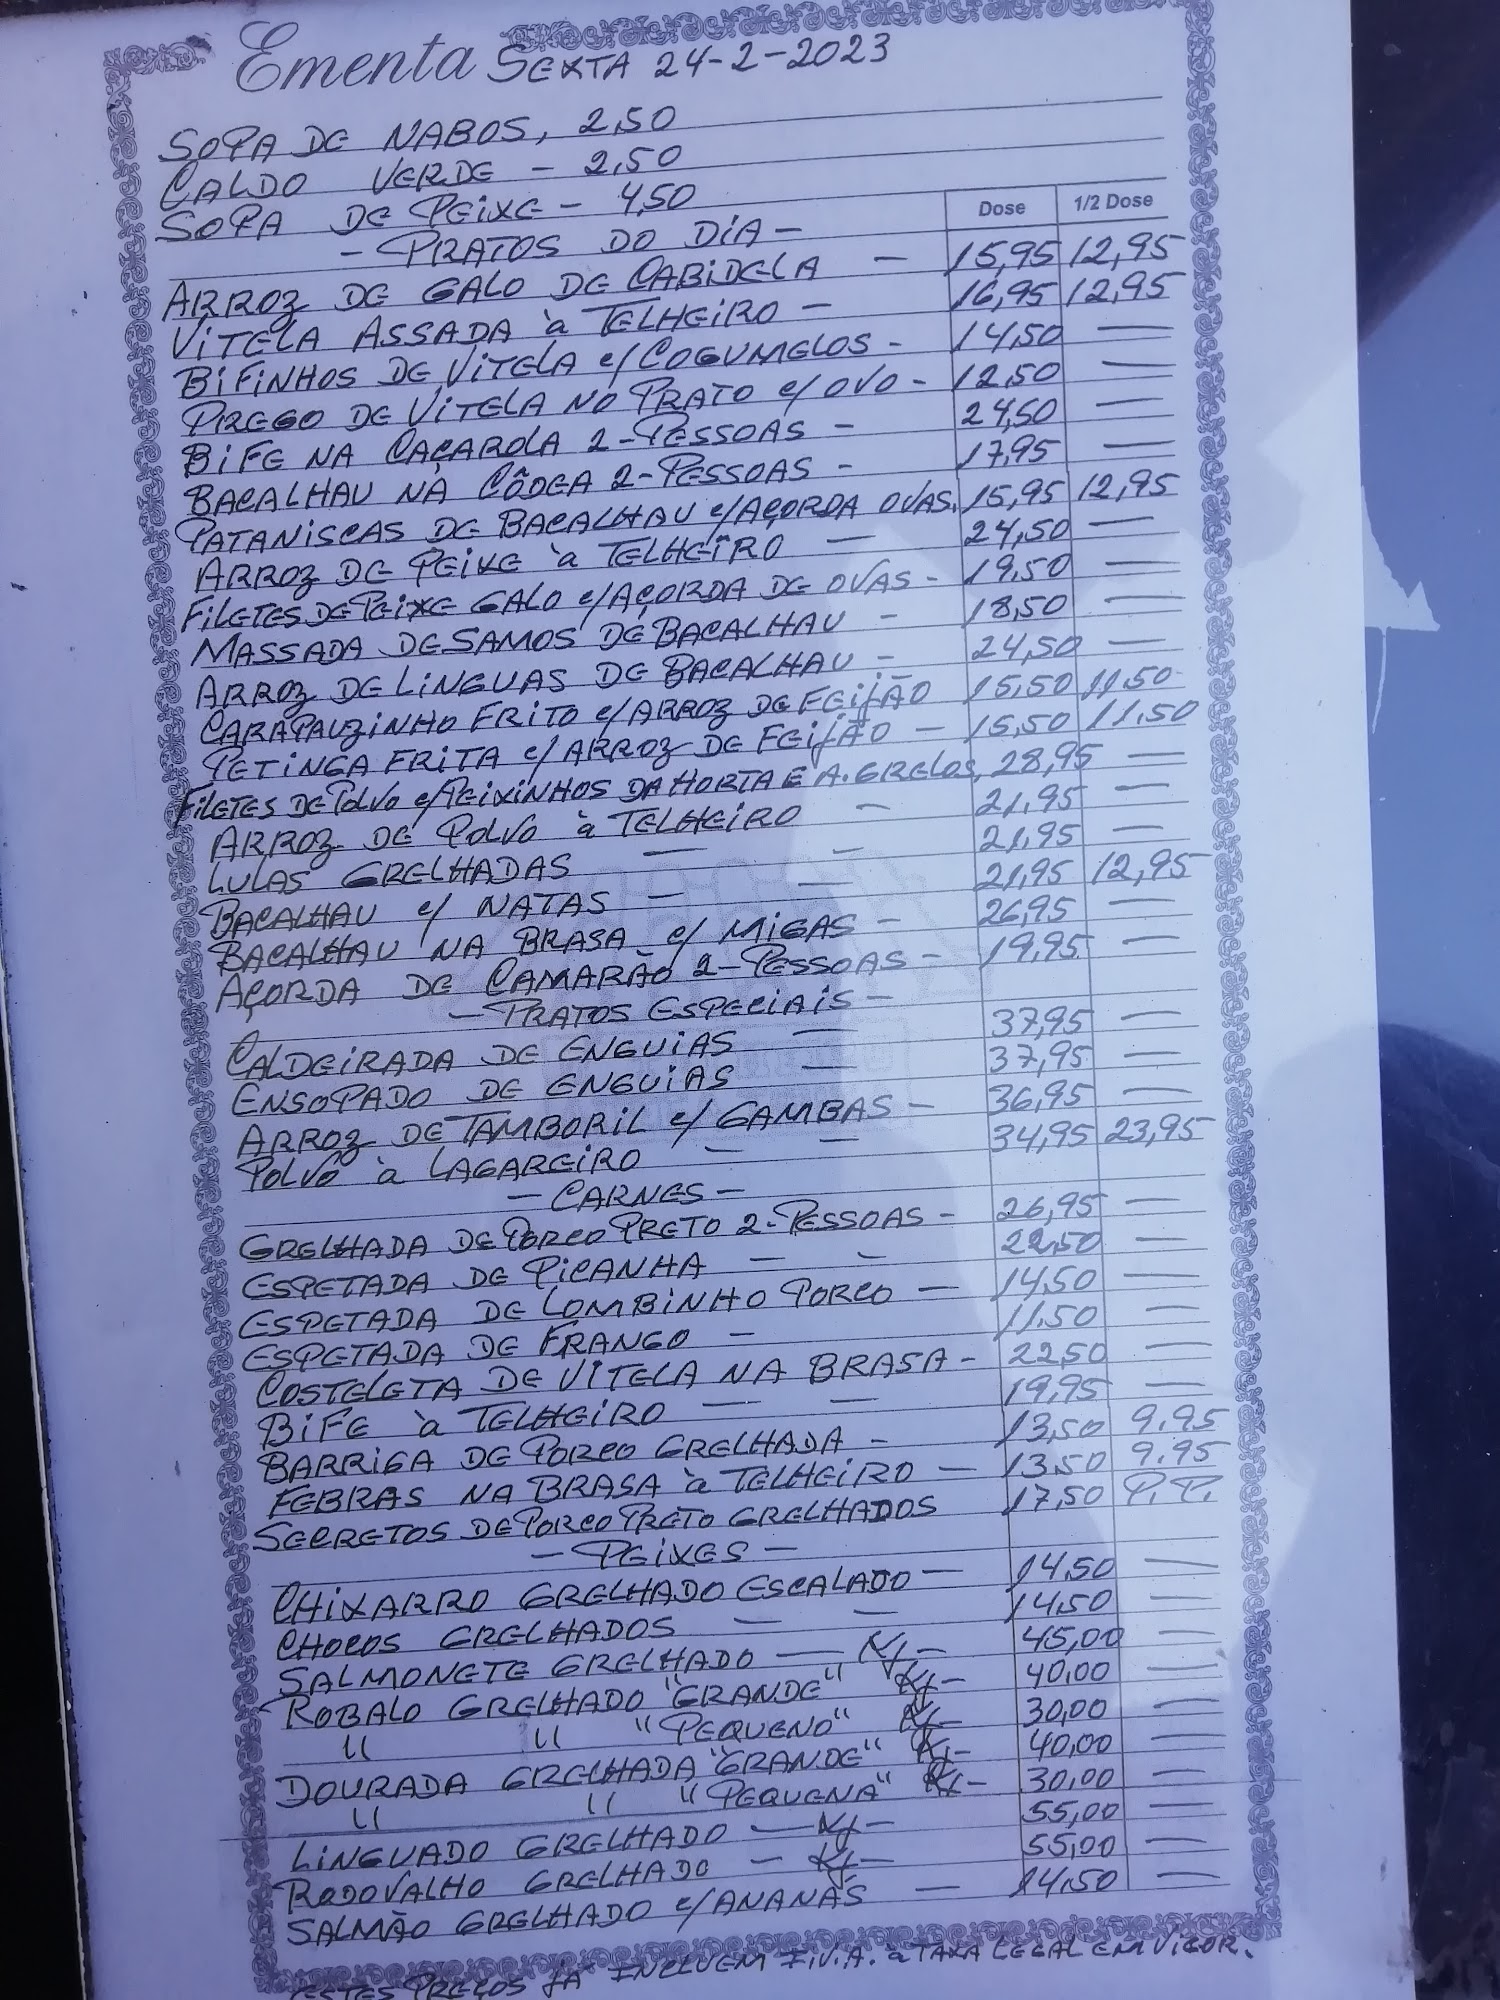 Ementa SEXTA 24-2-2023
SOPA DE NABOS, 2,50
CALDO VERDE - 2,50
SOPA DE PEIXE - 4,50
Dose 1/2 Dose
- PRATOS DO DIA -
ARROZ DE GALO DE CABIDELA — 15,95 12,95
VITELA ASSADA à TELHEIRO — 16,95 12,95
BIFINHOS DE VITELA c/COGUMELOS - 14,50 —
PREGO DE VITELA NO PRATO c/ OVO - 12,50 —
BIFE NA CAÇAROLA 2-PESSOAS - 24,50 —
BACALHAU NA CÔDEA 2-PESSOAS - 17,95 —
PATANISCAS DE BACALHAU c/AÇORDA OVAS. 15,95 12,95
ARROZ DE PEIXE à TELHEIRO — 24,50 —
FILETES DE PEIXE GALO c/AÇORDA DE OVAS - 19,50 —
MASSADA DE SAMOS DE BACALHAU - 18,50 —
ARROZ DE LINGUAS DE BACALHAU - 24,50 —
CARAPAUZINHO FRITO c/ARROZ DE FEIJÃO 15,50 11,50
PETINGA FRITA c/ARROZ DE FEIJÃO - 15,50 11,50
FILETES DE POLVO c/PEIXINHOS DA HORTA E A. GRELOS, 28,95 —
ARROZ DE POLVO à TELHEIRO — 21,95 —
LULAS GRELHADAS — — 21,95 —
BACALHAU c/ NATAS — — 21,95 12,95
BACALHAU NA BRASA c/ MIGAS - 26,95 —
AÇORDA DE CAMARÃO 2-PESSOAS - 19,95 —
- PRATOS ESPECIAIS -
CALDEIRADA DE ENGUIAS — 37,95 —
ENSOPADO DE ENGUIAS — 37,95 —
ARROZ DE TAMBORIL c/ GAMBAS - 36,95 —
POLVO à LAGAREIRO — — 34,95 23,95
- CARNES -
GRELHADA DE PORCO PRETO 2-PESSOAS - 26,95 —
ESPETADA DE PICANHA — - 22,50 —
ESPETADA DE LOMBINHO PORCO — 14,50 —
ESPETADA DE FRANGO — 11,50 —
COSTELETA DE VITELA NA BRASA - 22,50 —
BIFE à TELHEIRO — — 19,95 —
BARRIGA DE PORCO GRELHADA - 13,50 9.95
FEBRAS NA BRASA à TELHEIRO — 13,50 9.95
SECRETOS DE PORCO PRETO GRELHADOS 17,50 P.P.
- PEIXES -
CHIXARRO GRELHADO ESCALADO — 14,50 —
CHOCOS GRELHADOS — — 14,50 —
SALMONETE GRELHADO — K/- 45,00 —
ROBALO GRELHADO "GRANDE" K/- 40,00 —
" " "PEQUENO" K/- 30,00 —
DOURADA GRELHADA "GRANDE" K/- 40,00 —
" " "PEQUENA" K/- 30,00 —
LINGUADO GRELHADO — K/- 55,00 —
RODOVALHO GRELHADO — K/- 55,00 —
SALMÃO GRELHADO c/ANANÁS — 14,50 —
ESTES PREÇOS JÁ INCLUEM I.V.A. à TAXA LEGAL EM VIGOR.